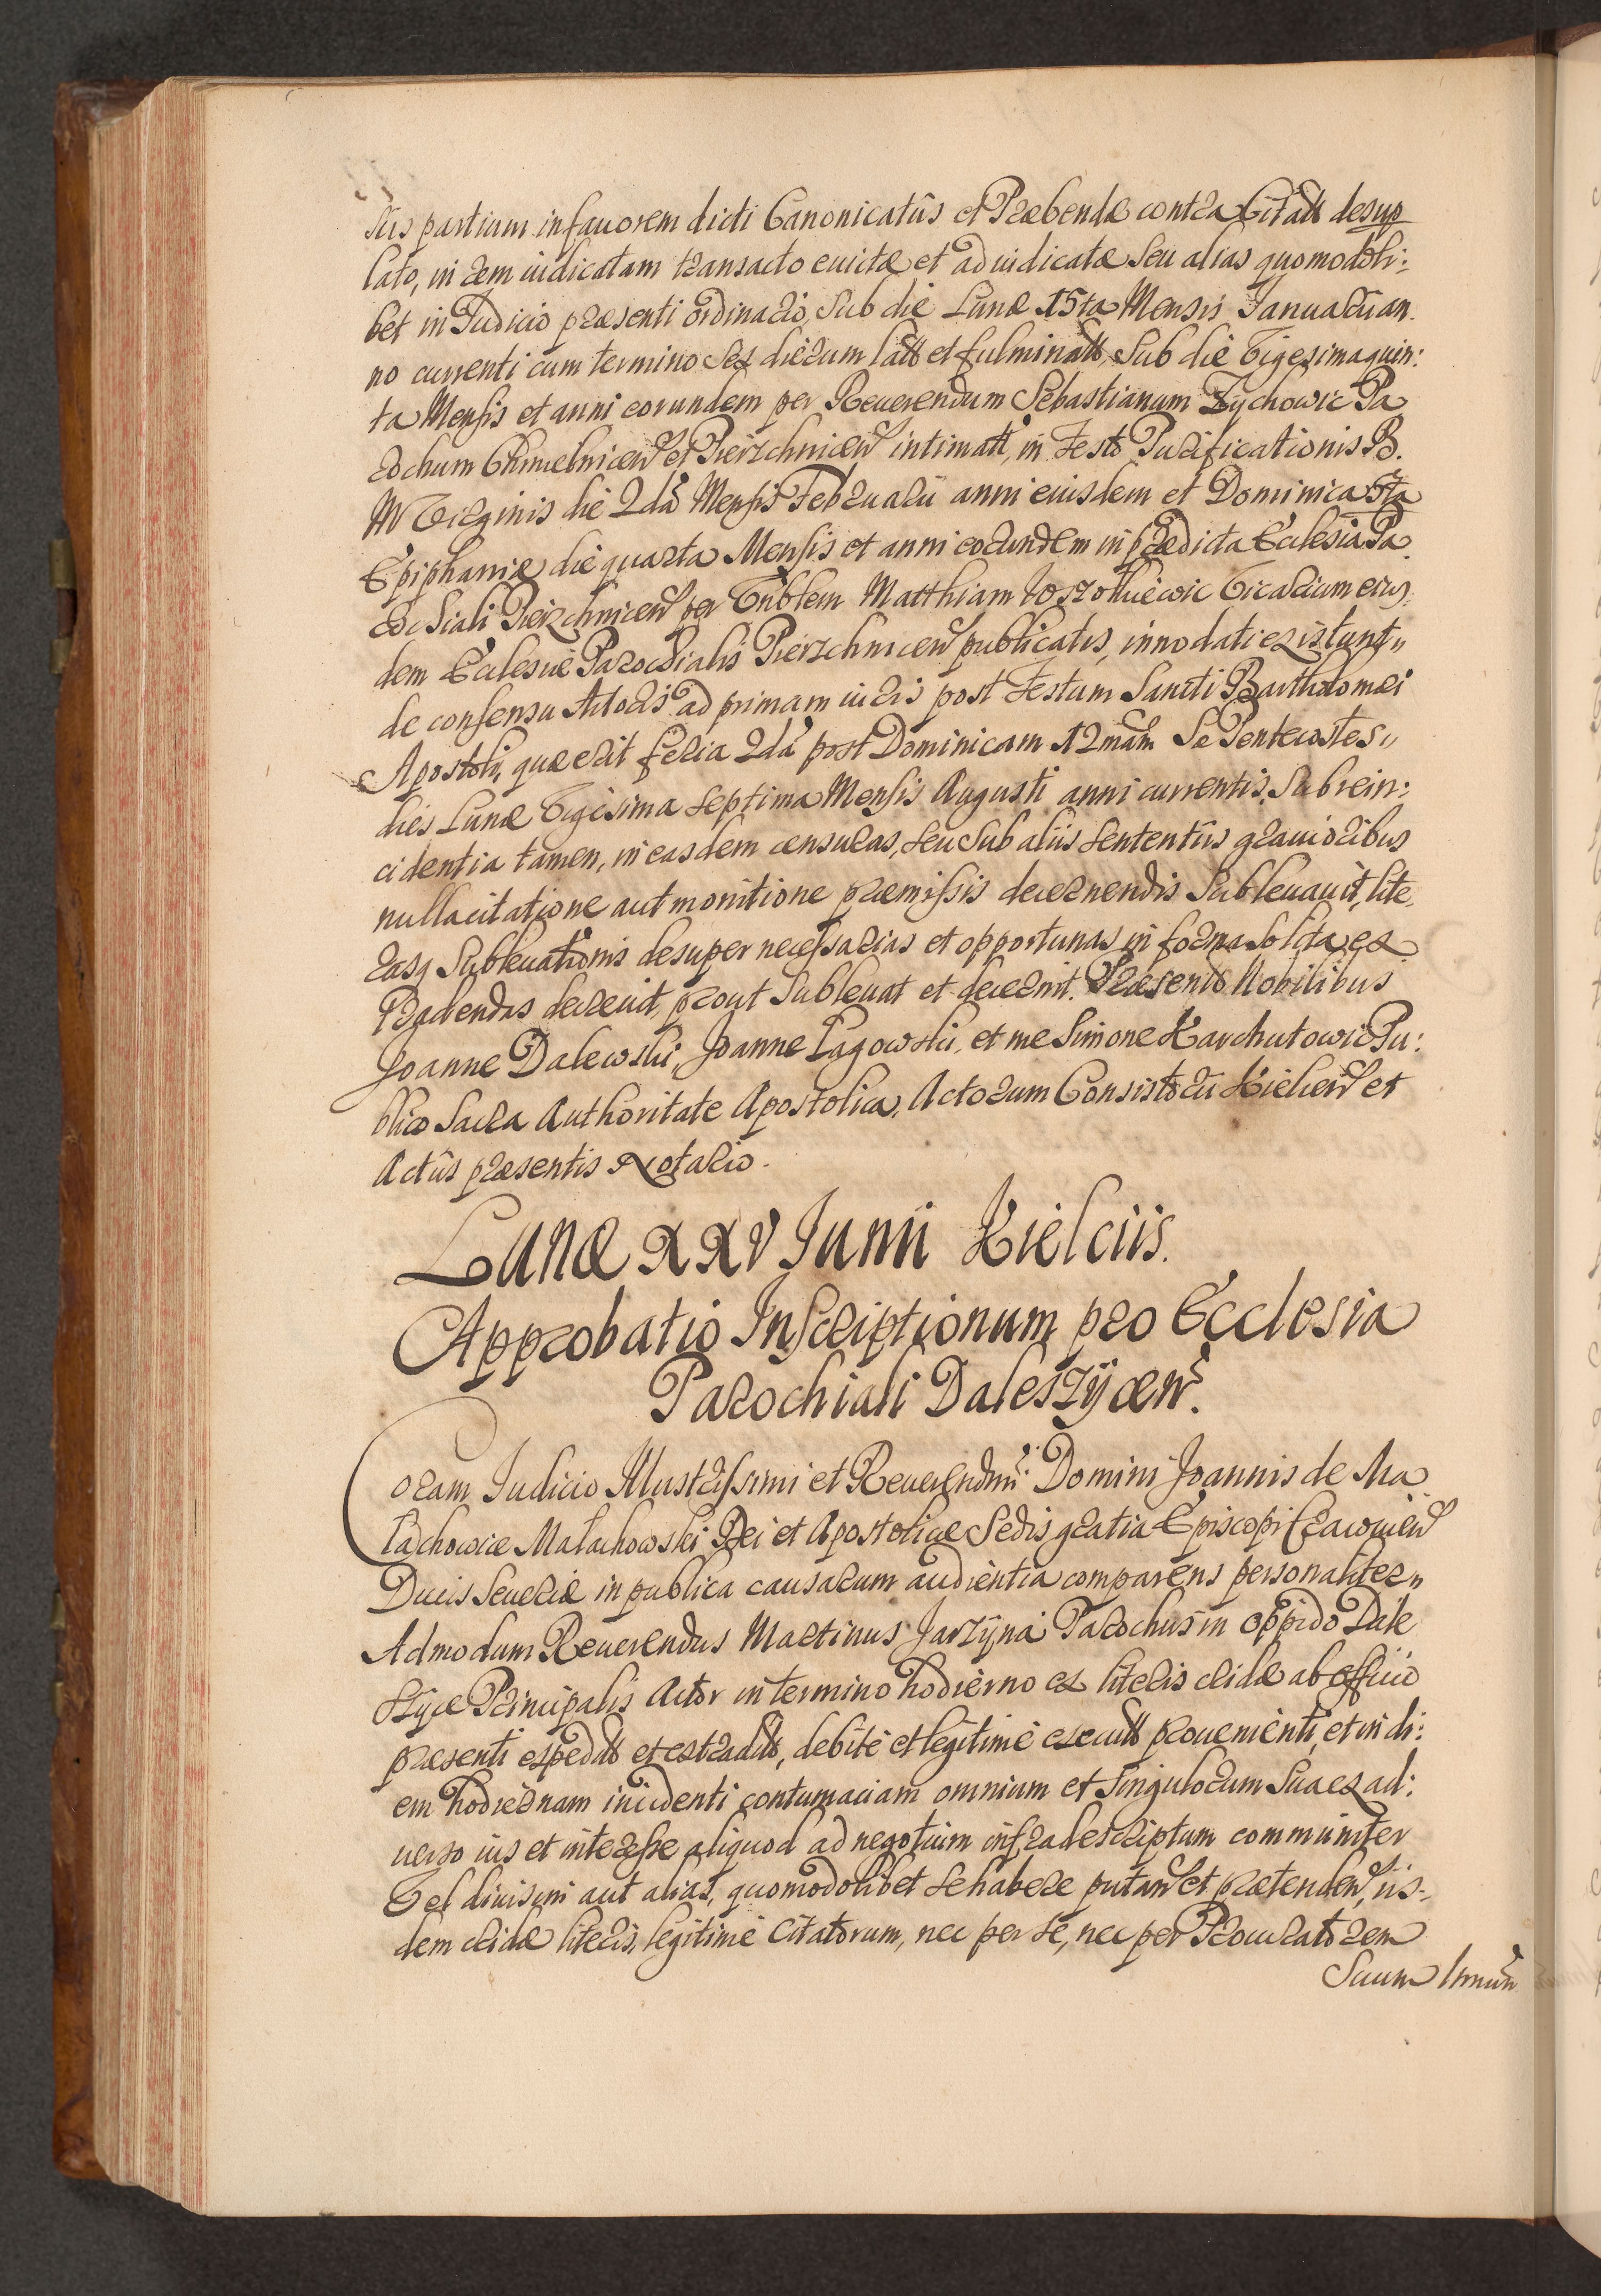 sus partium in fauorem dicti Canonicatûs et Præbendæ contra Citatt desup
lato, in rem iudicatam transacto euictæ et adiudicatæ seu alias quomodoli:
bet in Judicio præsenti ordinario, sub die Lunæ 15ta Mensis Januarii an
no currenti cum termino sex dierum latt et fulminatt, sub die Vigesimaquin:
ta Mensis et anni eorundem per Reuerendum Sebastianum Zychowic Pa
rochum Chmelnicen et Pierzchnicen intimatt, in Festo Purificationis B.
M Virginis die 2da Mensis Februarii anni eiusdem et Dominica 5ta
Epiphaniæ die quarta Mensis et anni eorundem in prædicta Ecclesia Pa
rochiali Pierzchnicen per Vnblem Matthiam Vicarium eius
dem Ecclesiæ Parochialis Pierzchnicen publicatis, innodati existunt
de consensu Actoris ad primam iuris post Festum Sancti Bartholomæi
Apostoli, quæ erit feria 2da post Dominicam 12mam Sæ Pentecostes
dies Lunæ Vigesima septima Mensis Augusti anni currentis. Sub rein:
cidentia tamen, in easdem censuras, seu sub aliis sententiis grauioribus
nulla citatione aut monitione præmissis decernendis subleuauit, lite
rasq subleuationis desuper necessarias et opportunas in forma solita ex
tradendas decreuit, prout subleuat et decernit. Præsentb Nobilibus
Joanne Dalewski, Joanne Łagowski, et me Simone Karchutowic Pu:
blico Sacra Authoritate Apostolica, Actorum Consistorii Kielcen et
Actûs præsentis Notario.
Lunæ XXV Junii Kielciis.
Approbatio Inscriptionum pro Ecclesia
Parochiali Daleszÿcen.
Coram Judicio Illustrissimi et Reuerendmi Domini Joannis de Ma
łachowice Małachowski Dei et Apostolicæ Sedis gratia Episcopi Cracouien
Ducis Seueriæ in publica causarum audientia comparens personaliter
Admodum Reuerendus Martinus Jarzÿna Parochus in oppido Dale
szÿce Principalis Actor in termino hodierno ex literis cridæ ab officio
præsenti expedtt et extradtt, debite et legitime executt prouenienti, et in di:
em hodiernam incidenti contumaciam omnium et singulorum sua ex ad:
uerso ius et interesse aliquod ad negotium infradescriptum communiter
vel diuisim aut alias, quomodolibet se habere putan et prætenden, iis:
dem cridæ literis, legitime Citatorum, nec per se, nec per Procuratorem
Suum